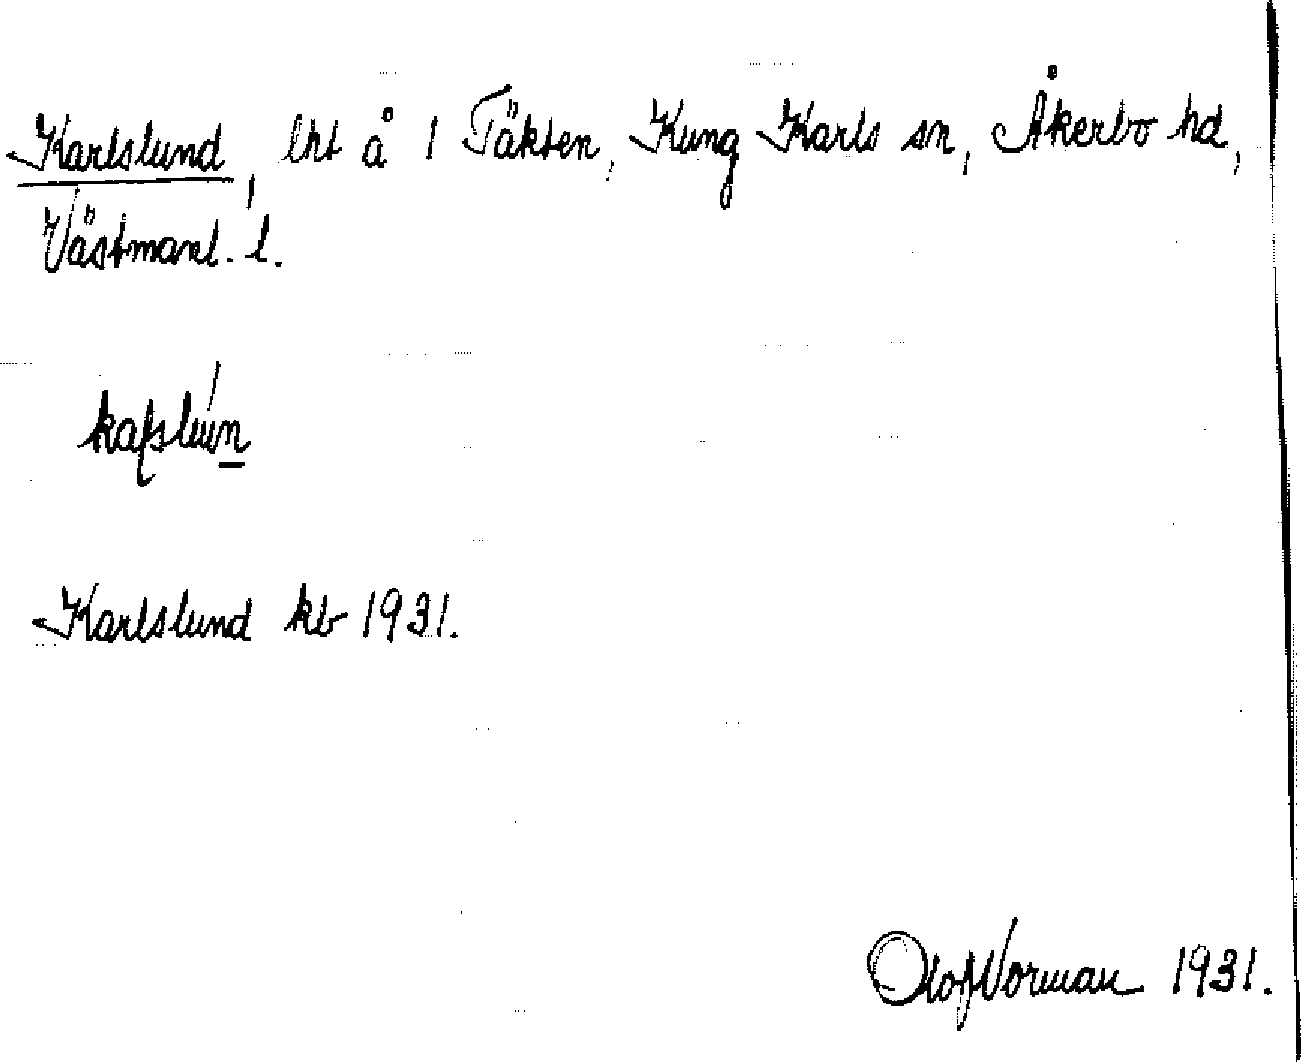 Karlslund, lht å 1 Täkten, Kung Karls sn, Åkerbo hd,
Västmanl. l.
Karlslund kb 1931.
Olof Norman 1931.